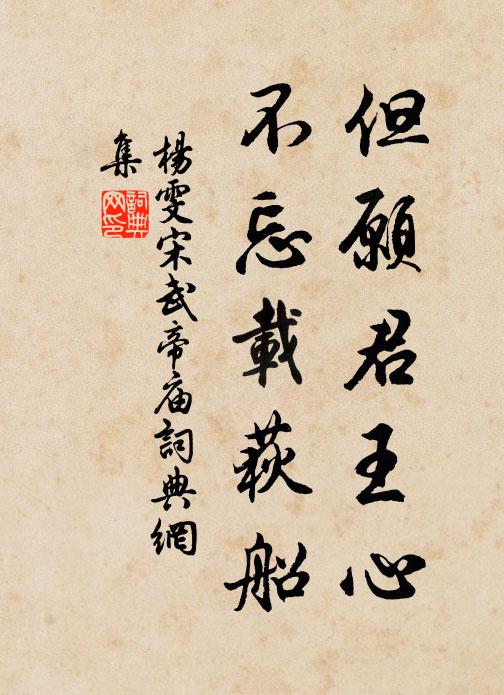 但願君王心
不忘載荻船
楊雯宋武帝庙詞典網
集
詞典
网印